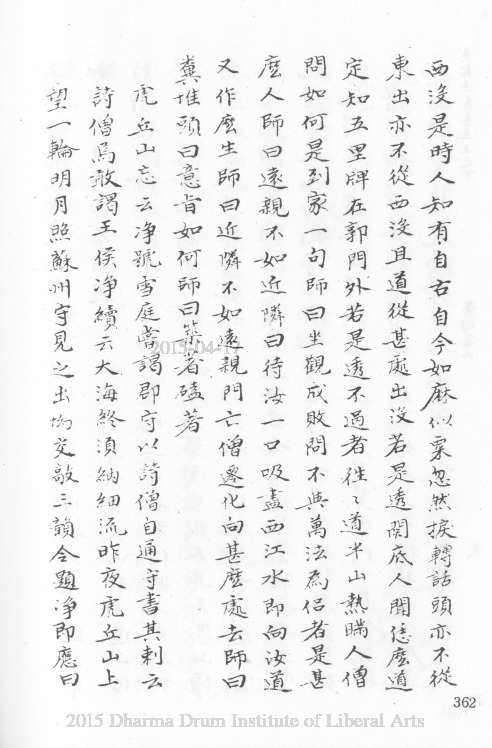 西沒是時人知有自古自今如麻似粟忽然捩轉話頭亦不從
東出亦不從西沒且道從甚處出沒若是透関底人聞恁麼道
定知五里牌在郭門外若是透不過者往〻道半山熱瞞人僧
問如何是到家一句師曰坐觀成敗問不與萬法為侶者是甚
麼人師曰遠親不如近隣曰待汝一口吸盡西江水即向汝道
又作麼生師曰近隣不如遠親門亡僧遷化向甚麼處去師曰
糞堆頭曰意旨如何師曰築著磕著
虎丘山忘云净號雪庭嘗謁郡守以詩僧自通守書其刺云
詩僧焉敢謁王侯净續云大海終須納細流昨夜虎丘山上
望一輪明月照蘇州守見之出均交敲三韻令題净即應曰
362
2013-04-17
2015 Dharma Drum Institute of Liberal Arts